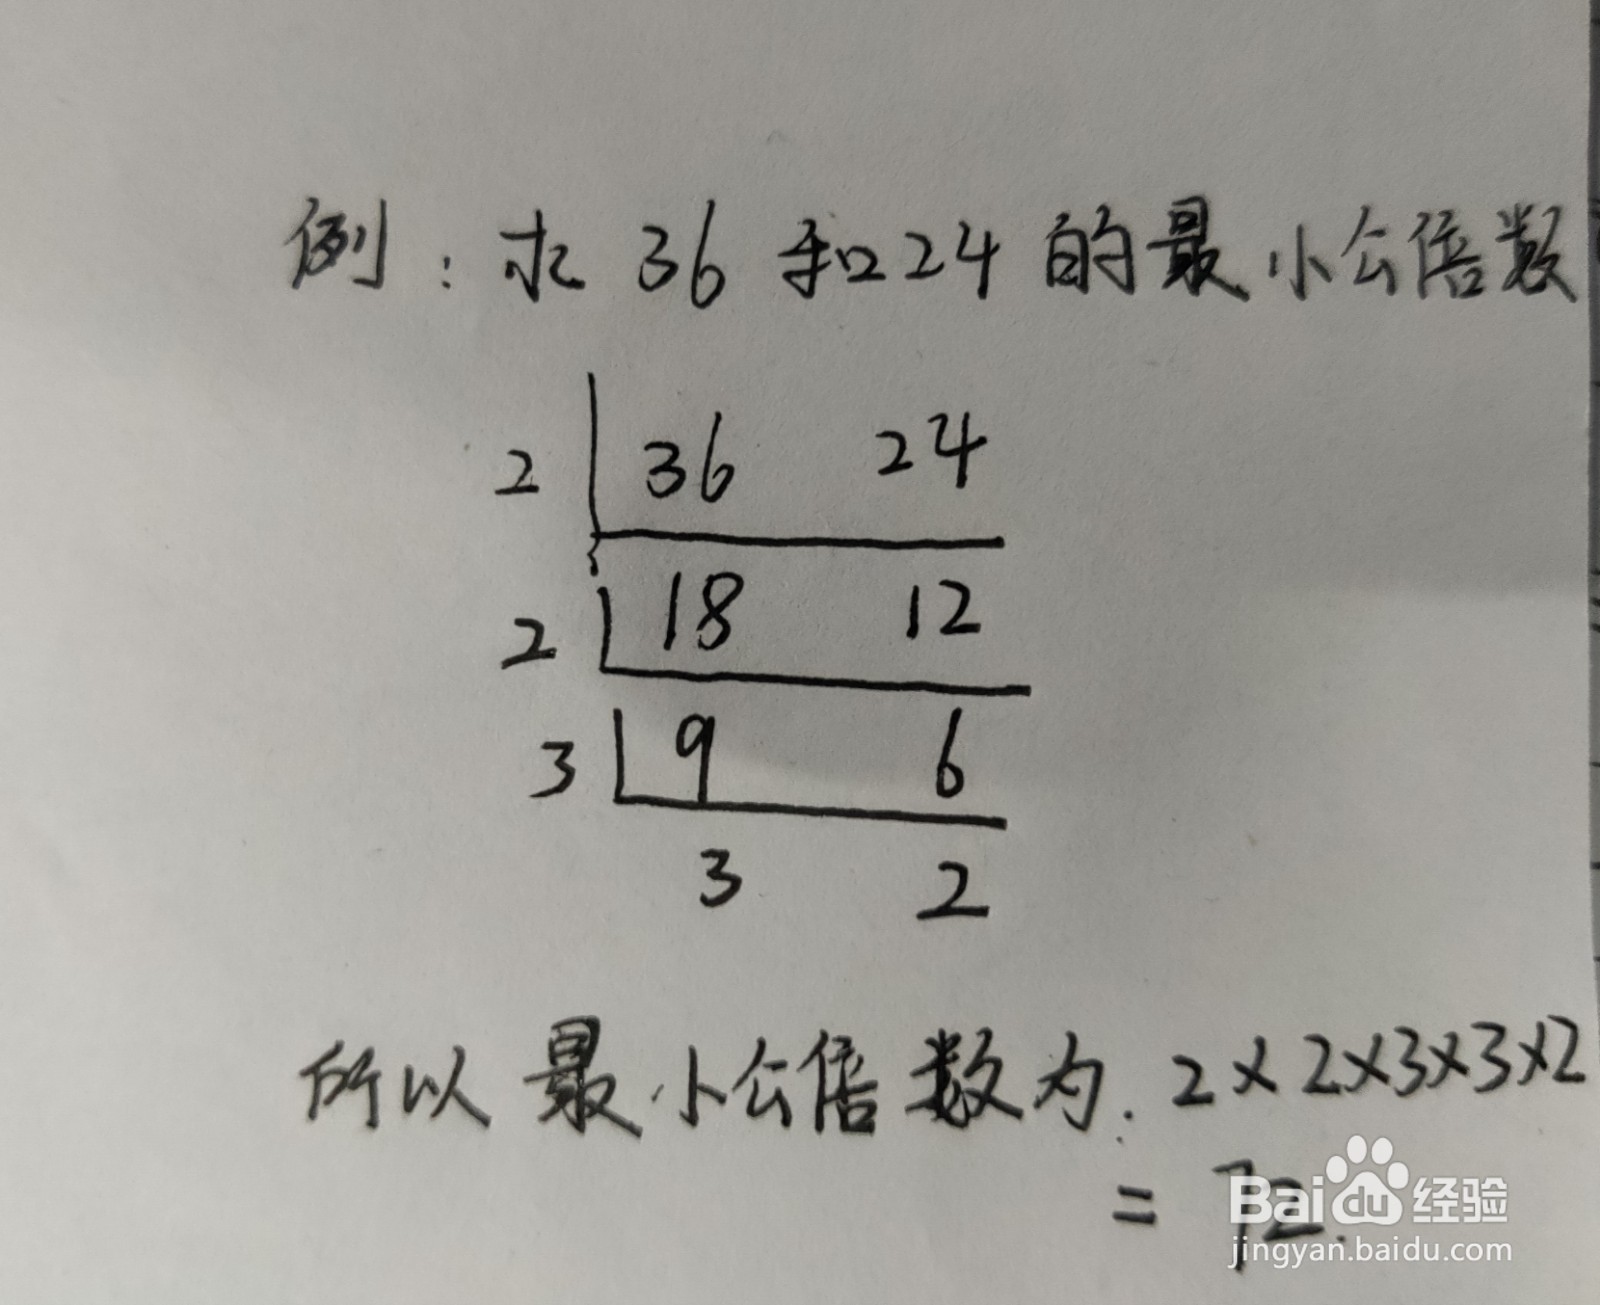 例：求 36 和 24 的最小公倍数
2 36 24
2 18 12
3 9 6
3 2
所以最小公倍数为：2×2×3×3×2
= 72.
Baidu 经验
jingyan.baidu.com